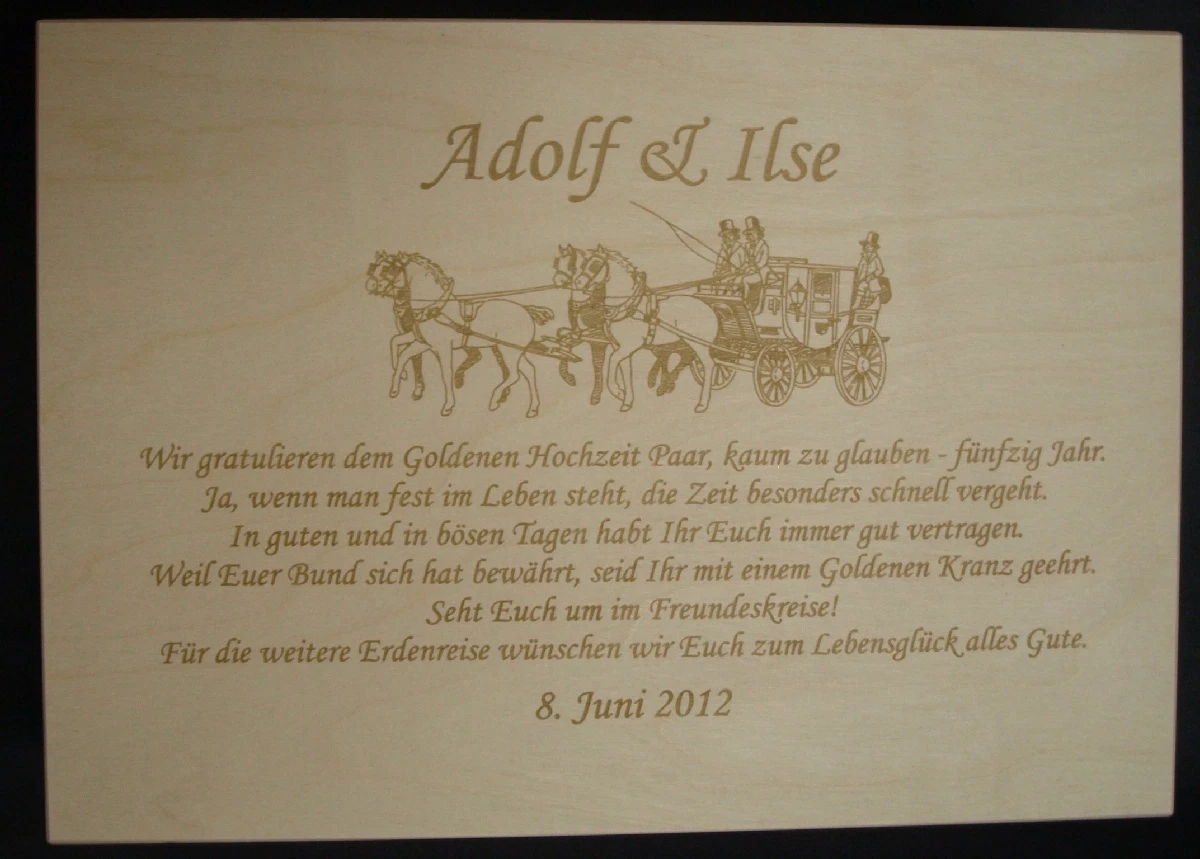 Adolf & Ilse
Wir gratulieren dem Goldenen Hochzeit Paar, kaum zu glauben - fünfzig Jahr.
Ja, wenn man fest im Leben steht, die Zeit besonders schnell vergeht.
In guten und in bösen Tagen habt Ihr Euch immer gut vertragen.
Weil Euer Bund sich hat bewährt, seid Ihr mit einem Goldenen Kranz geehrt.
Seht Euch um im Freundeskreise!
Für die weitere Erdenreise wünschen wir Euch zum Lebensglück alles Gute.
8. Juni 2012